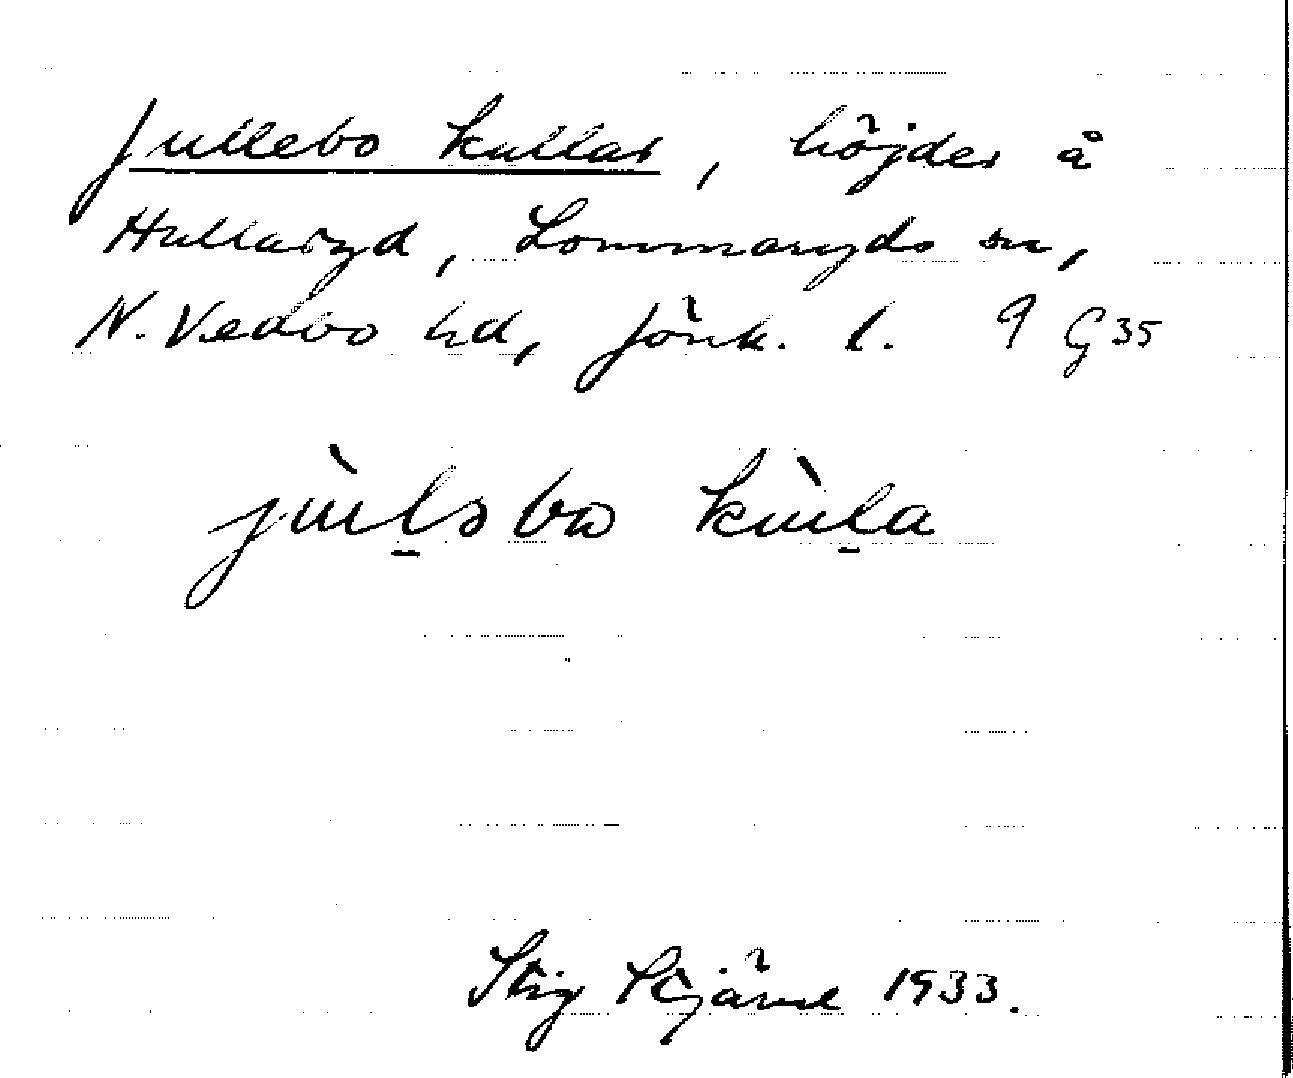 Jullebo kullar, höjder å
Hullaryd, Lommaryds sn,
N. Vedbo hd, Jönk. l. 9 G 35
jùl̲əbω kùl̲a
Stig Stjärne 1933.